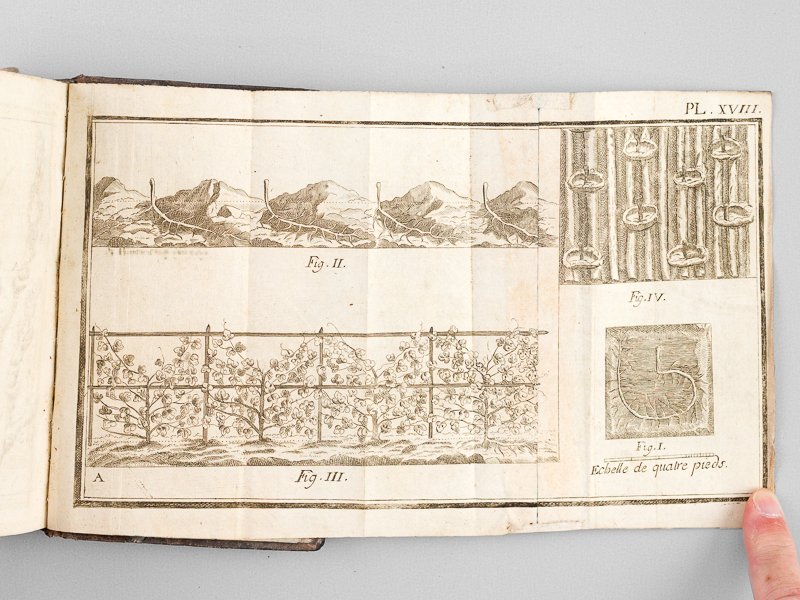 PL. XVIII.
Fig. II.
Fig. IV.
Fig. I.
Echelle de quatre pieds.
A
Fig. III.